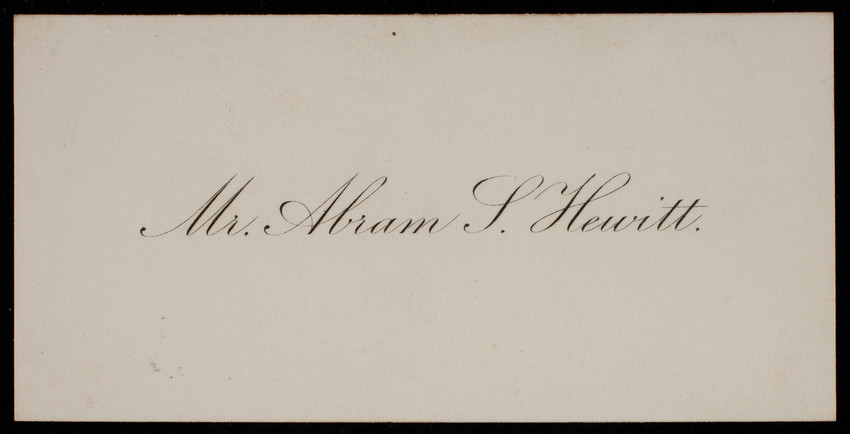 Mr. Abram S. Hewitt.